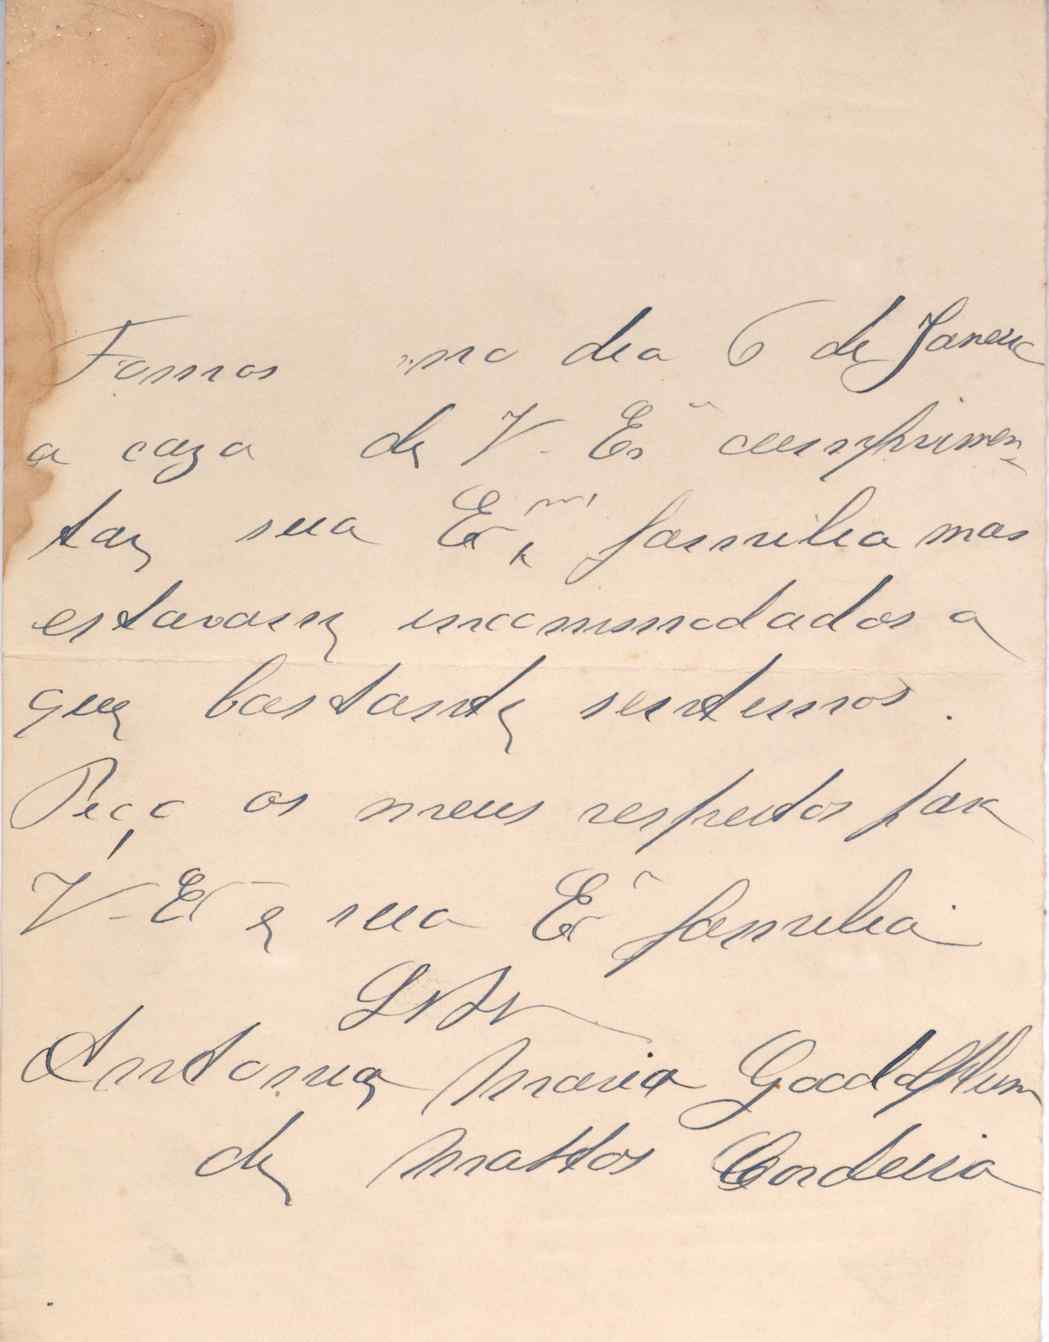 Fomos no dia 6 de Janeiro
a caza de V. Ex.ª cumprimen-
tar sua Ex.ma familia mas
estavam incommodados o
que bastante sentimos.
Peço os meus respeitos para
V. Ex.ª e sua Ex.ª familia
Antonia Maria Godolphim
de Mattos Cordeiro